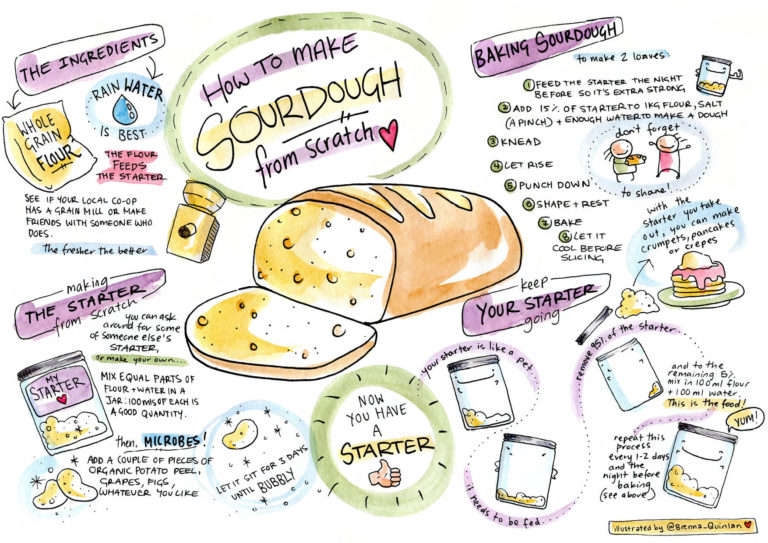 HOW TO MAKE
SOURDOUGH
from scratch
THE INGREDIENTS
WHOLE
GRAIN
FLOUR
RAIN WATER
IS BEST
THE FLOUR
FEEDS
THE STARTER
SEE IF YOUR LOCAL CO-OP
HAS A GRAIN MILL OR MAKE
FRIENDS WITH SOMEONE WHO
DOES.
The fresher the better
making
THE STARTER
from scratch
you can ask
around for some
of someone else's
STARTER,
or make your own...
MY
STARTER
MIX EQUAL PARTS OF
FLOUR + WATER IN A
JAR: 100MLS OF EACH IS
A GOOD QUANTITY.
then, MICROBES!
ADD A COUPLE OF PIECES OF
ORGANIC POTATO PEEL,
GRAPES, FIGS,
WHATEVER YOU LIKE
LET IT SIT FOR 3 DAYS
UNTIL BUBBLY
NOW
YOU HAVE
A
STARTER
BAKING SOURDOUGH
to make 2 loaves:
1 FEED THE STARTER THE NIGHT
BEFORE SO IT'S EXTRA STRONG
2 ADD 15% OF STARTER TO 1KG FLOUR, SALT
(A PINCH) + ENOUGH WATER TO MAKE A DOUGH
3 KNEAD
4 LET RISE
5 PUNCH DOWN
6 SHAPE + REST
7 BAKE
8 LET IT
COOL BEFORE
SLICING
don't forget
to share!
with the
starter you take
out, you can make
crumpets, pancakes
or crepes
keep
YOUR STARTER
going
your starter is like a pet...
it needs to be fed...
remove 95% of the starter
and to the
remaining 5%
mix in 100ml flour
+ 100ml water.
This is the food!
YUM!
repeat this
process
every 1-2 days
and the
night before
baking
(see above)
illustrated by @Brenna_Quinlan